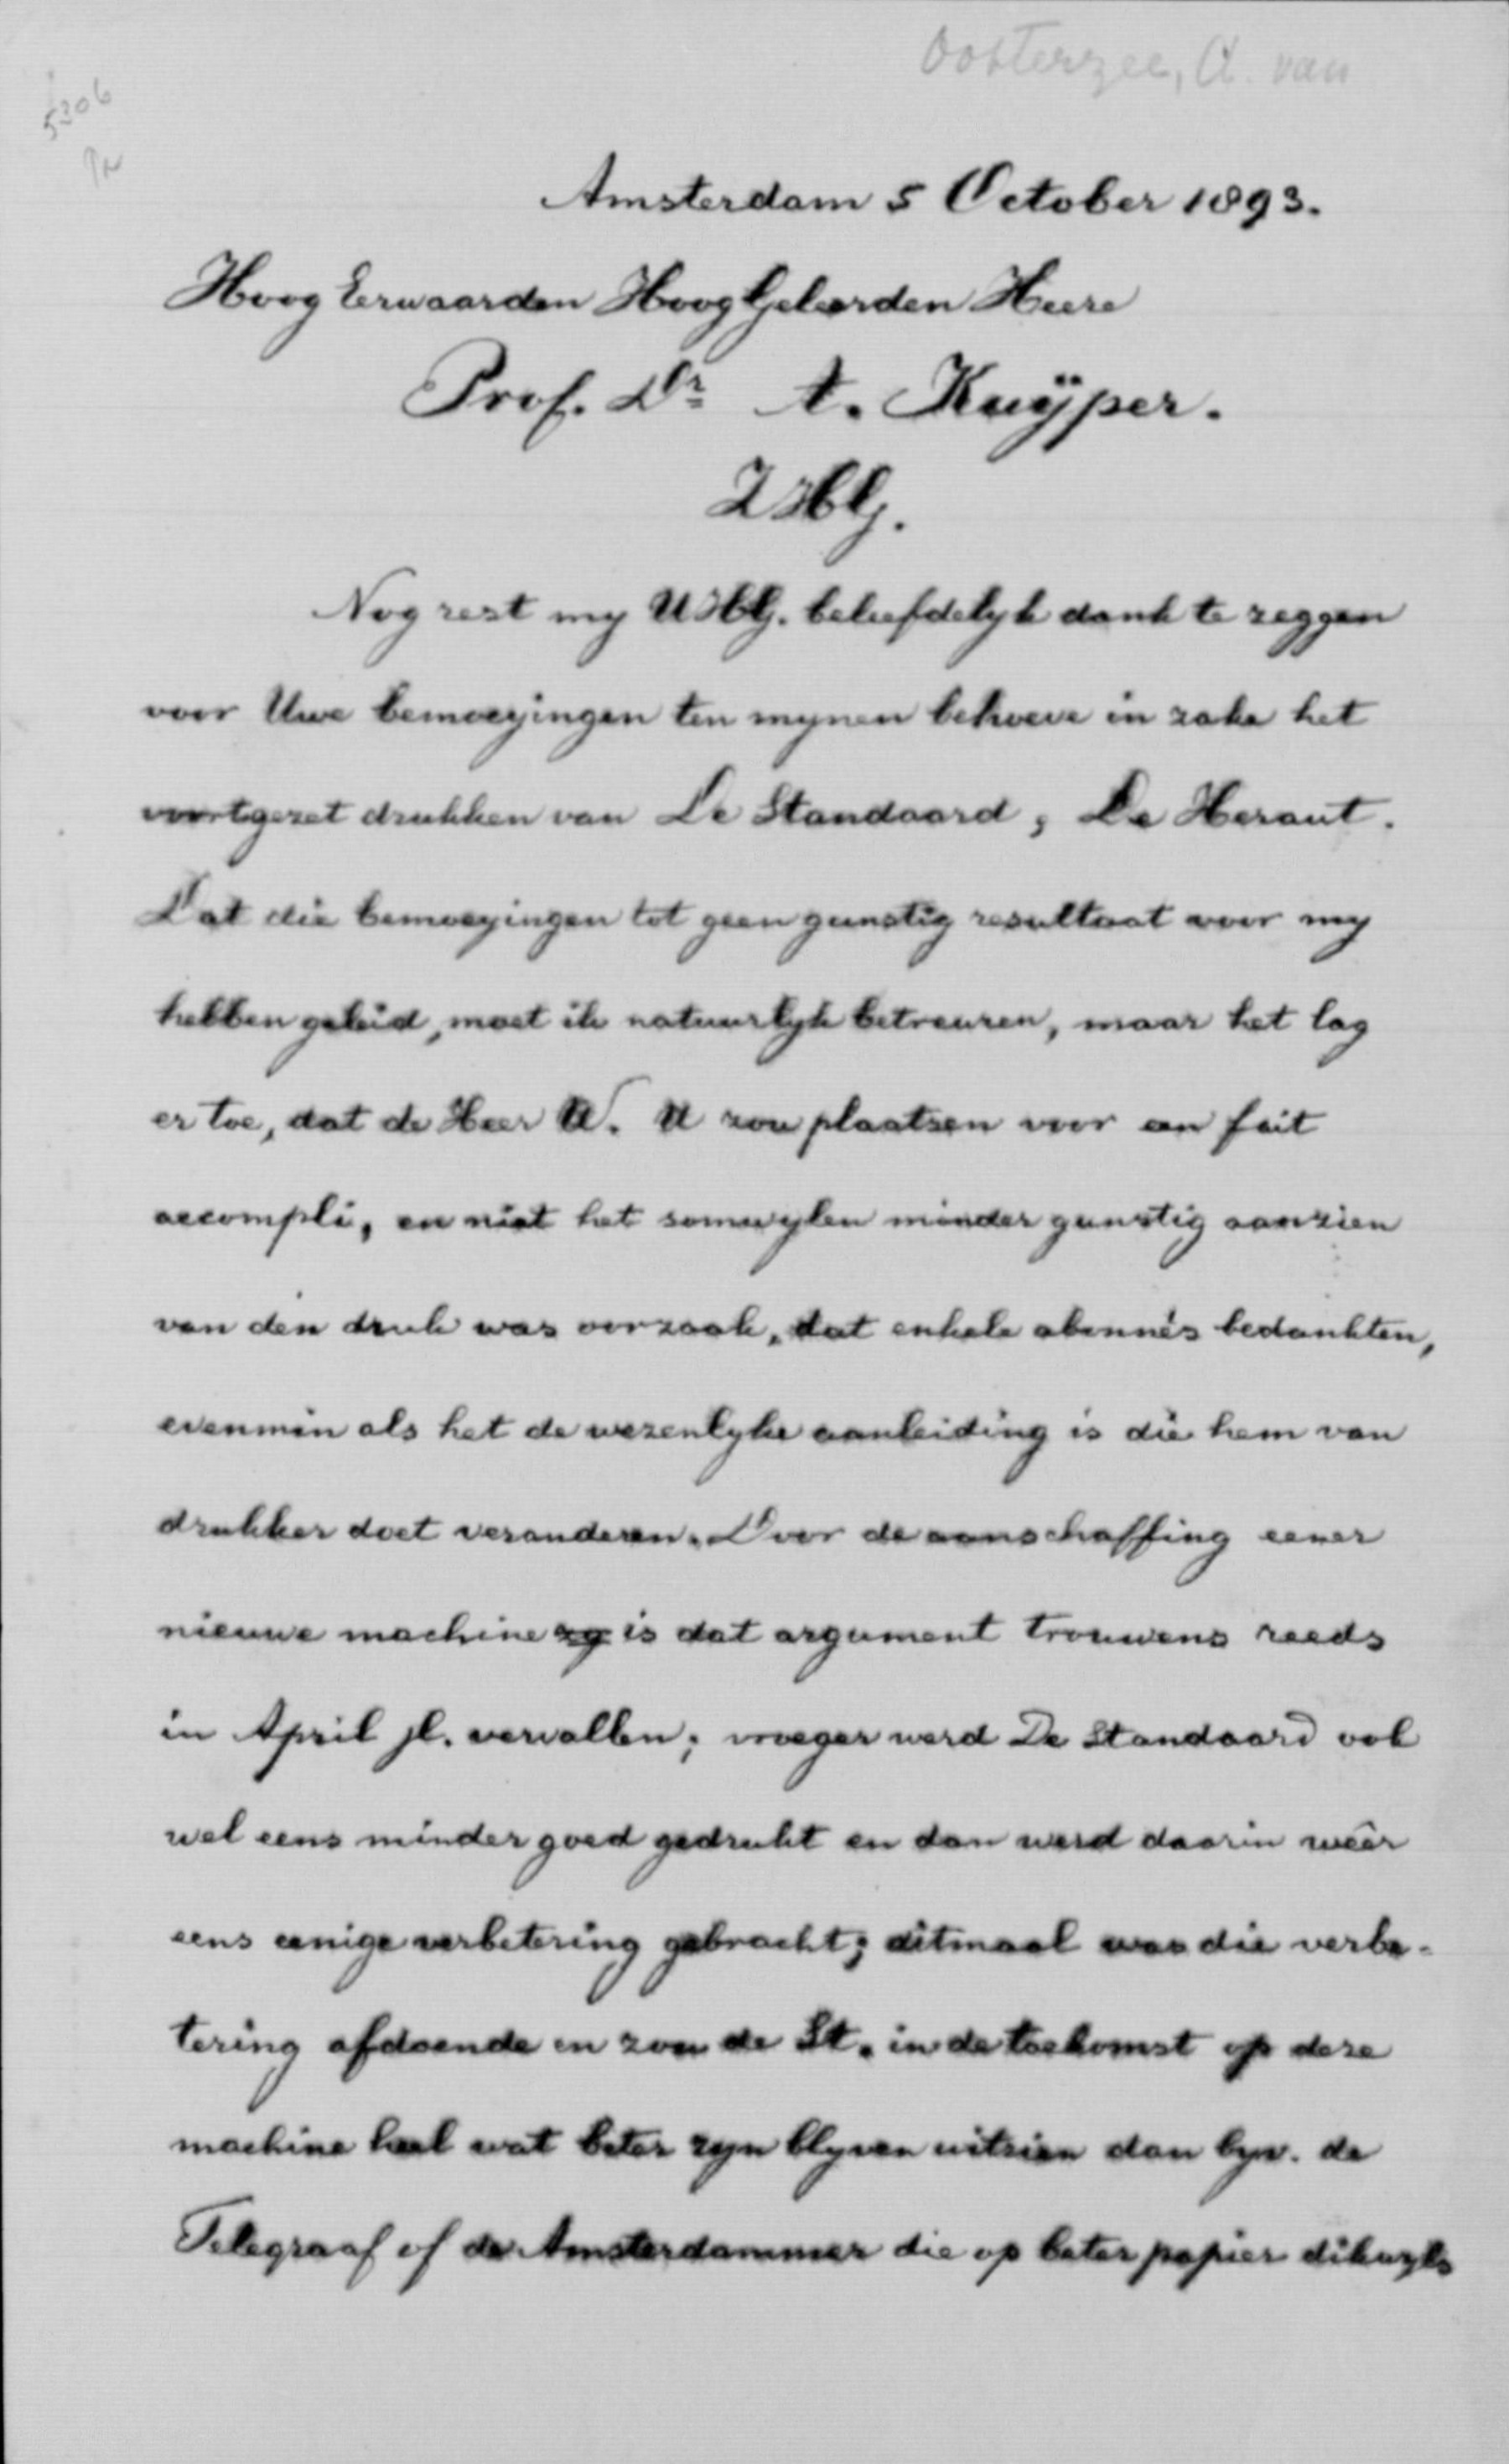 Oosterzee, A. van
5206
Amsterdam 5 October 1893.
Hoog Eerwaarden Hoog Geleerden Heere
Prof. Dr A. Kuÿper.
ZHG.
Nog rest my UHG. beleefdelyk dank te zeggen
voor Uwe bemoeyingen ten mynen behoeve in zake het
voortgezet drukken van De Standaard, De Heraut.
Dat die bemoeyingen tot geen gunstig resultaat voor my
hebben geleid, moet ik natuurlyk betreuren, maar het lag
er toe, dat de Heer W. U zou plaatsen voor een fait
accompli, en niet het somwylen minder gunstig aanzien
van den druk was oorzaak, dat enkele abonnés bedankten,
evenmin als het de wezenlyke aanleiding is die hem van
drukker doet veranderen. Door de aanschaffing eener
nieuwe machine zy is dat argument trouwens reeds
in April jl. vervallen; vroeger werd De Standaard ook
wel eens minder goed gedrukt en dan werd daarin weêr
eens eenige verbetering gebracht; ditmaal was die verbe-
tering afdoende en zou de St. in de toekomst op deze
machine heel wat beter zyn blyven uitzien dan byv. de
Telegraaf of de Amsterdammer die op beter papier dikwyls